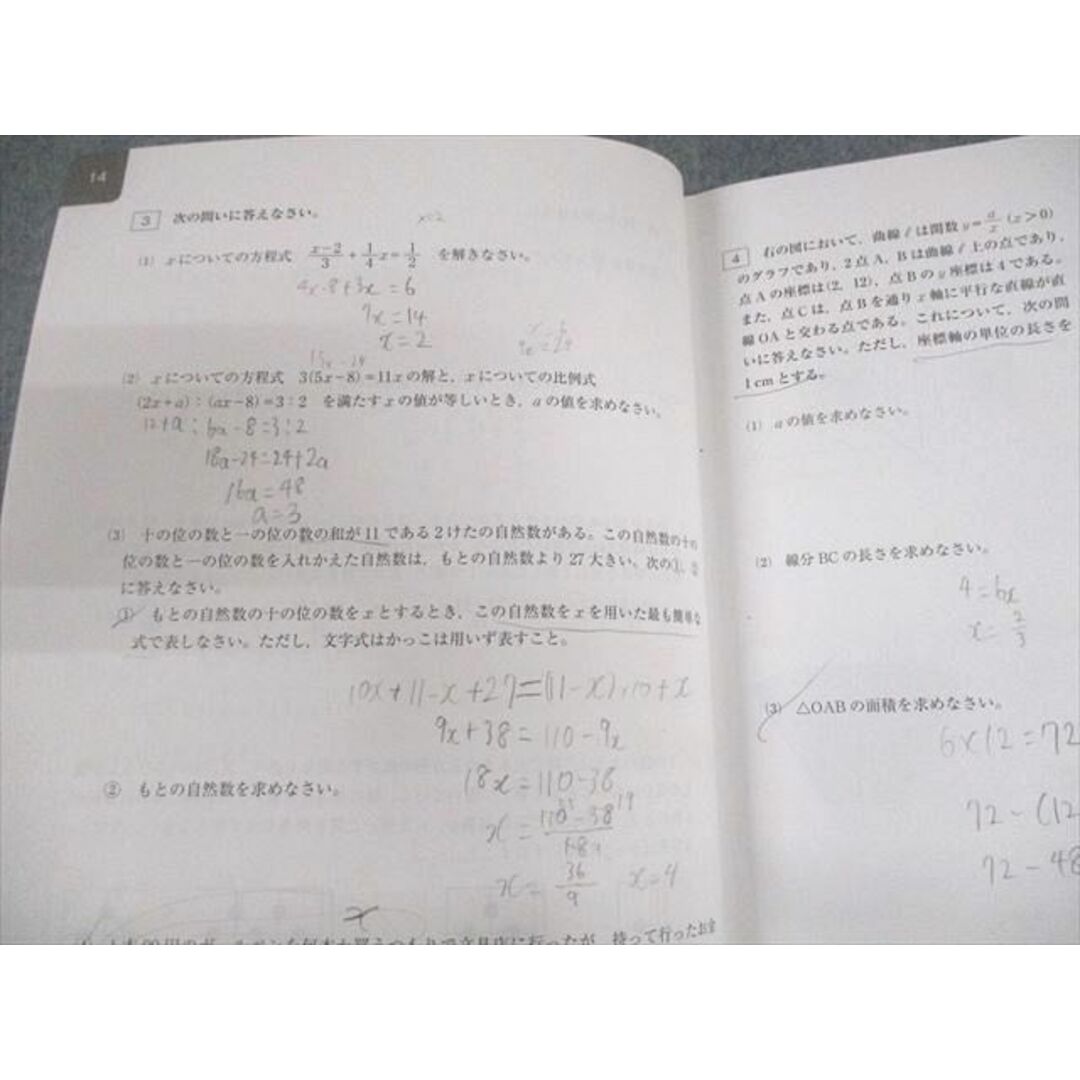 14
3 次の問いに答えなさい。
x=2
(1) xについての方程式 \frac{x-2}{3}+\frac{1}{4}x=\frac{1}{2} を解きなさい。
4x-8+3x=6
7x=14
x=2
15x-24
(2) xについての方程式 3(5x-8)=11xの解と、xについての比例式
(2x+a):(ax-8)=3:2 を満たすxの値が等しいとき、aの値を求めなさい。
12+a:6a-8=3:2
18a-24=24+2a
16a=48
a=3
(3) 十の位の数と一の位の数の和が11である2けたの自然数がある。この自然数の十の
位の数と一の位の数を入れかえた自然数は、もとの自然数より27大きい。次の①、②
に答えなさい。
① もとの自然数の十の位の数をxとするとき、この自然数をxを用いた最も簡単な
式で表しなさい。ただし、文字式はかっこは用いず表すこと。
10x+11-x+27=(11-x)×10+x
9x+38=110-9x
② もとの自然数を求めなさい。
18x=110-38
x=
x=\frac{36}{9} x=4
4 右の図において、曲線ℓは関数y=\frac{a}{x}(x>0)
のグラフであり、2点A、Bは曲線ℓ上の点であり、
点Aの座標は(2, 12)、点Bのy座標は4である。
また、点Cは、点Bを通りx軸に平行な直線が直
線OAと交わる点である。これについて、次の問
いに答えなさい。ただし、座標軸の単位の長さを
1cmとする。
(1) aの値を求めなさい。
(2) 線分BCの長さを求めなさい。
4=6x
x=\frac{2}{3}
(3) △OABの面積を求めなさい。
6×12=72
72-(12
72-48